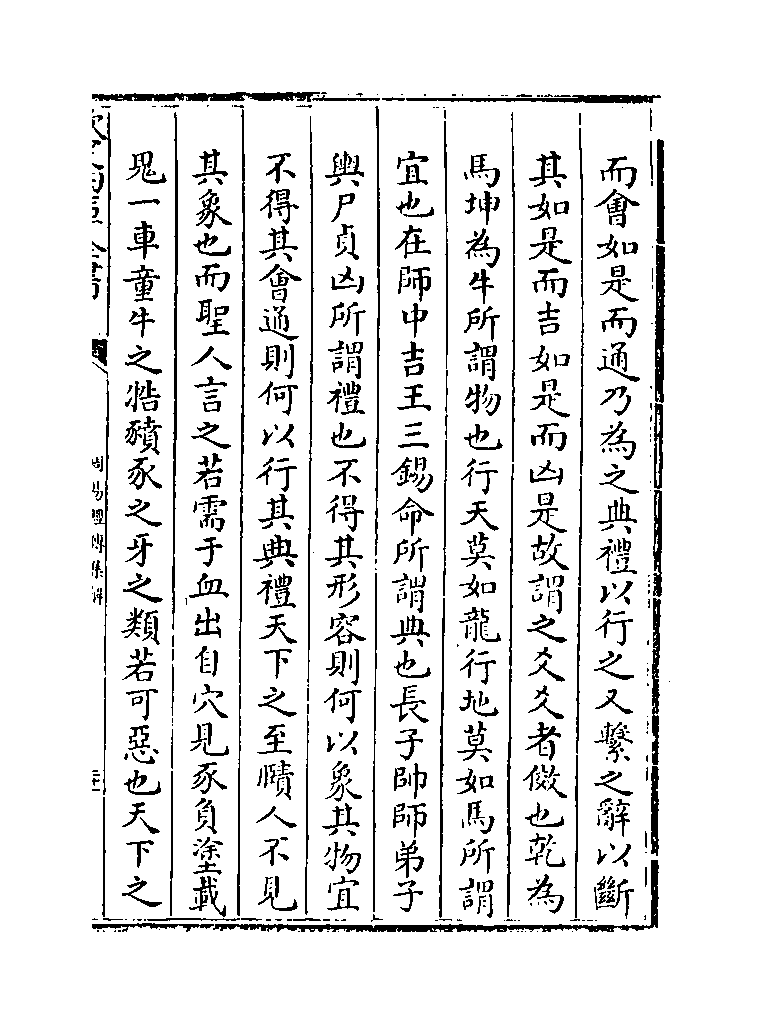 而會如是而通乃為之典禮以行之又繫之辭以斷
其如是而吉如是而凶是故謂之爻爻者傚也乾為
馬坤為牛所謂物也行天莫如龍行地莫如馬所謂
宜也在師中吉王三錫命所謂典也長子帥師弟子
輿尸貞凶所謂禮也不得其形容則何以象其物宜
不得其會通則何以行其典禮天下之至賾人不見
其象也而聖人言之若需于血出自穴見豕負塗載
鬼一車童牛之牿豶豕之牙之類若可惡也天下之
周易經傳集解